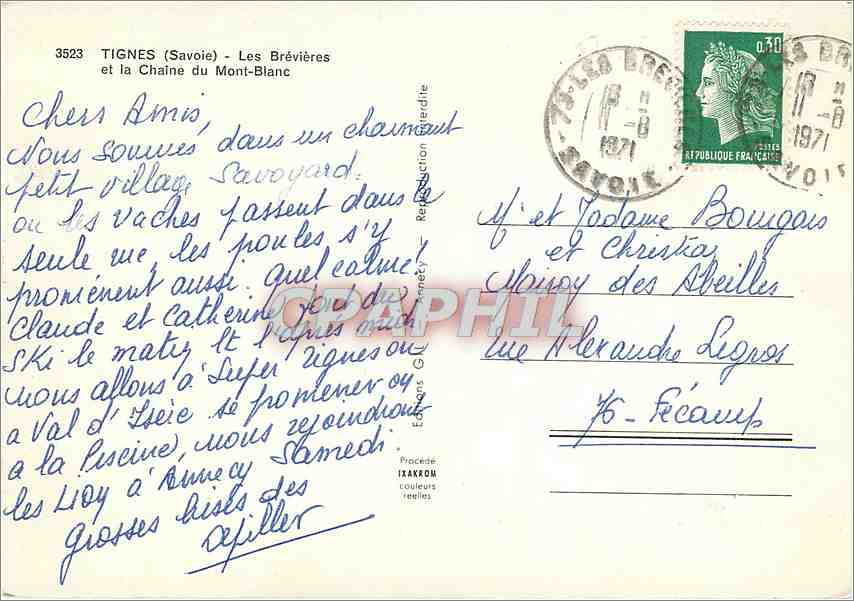 3523 TIGNES (Savoie) - Les Brévières
et la Chaîne du Mont-Blanc
Chers Amis,
Nous sommes dans un charmant
petit village Savoyard.
ou les vaches passent dans la
seule rue, les poules s'y
promènent aussi. quel calme!
Claude et Catherine font du
Ski le matin et l'après midi
nous allons à Super Tignes ou
a Val d'Isère se promener ou
a la Piscine, nous rejoindrons
les Lioy à Annecy Samedi.
grosses bises des
Editions Annecy — Reproduction interdite
Procédé
IXAKROM
couleurs
réelles
CPAPHIL
0,30
POSTES
REPUBLIQUE FRANÇAISE
73-LES BREVIERES
18 H
11 -8
1971
SAVOIE
LES BR
18 H
11 -8
1971
SAVOIE
Mr et Madame Bourgais
et Christian
Maison des Abeilles
rue Alexandre Legros
76 - Fécamp